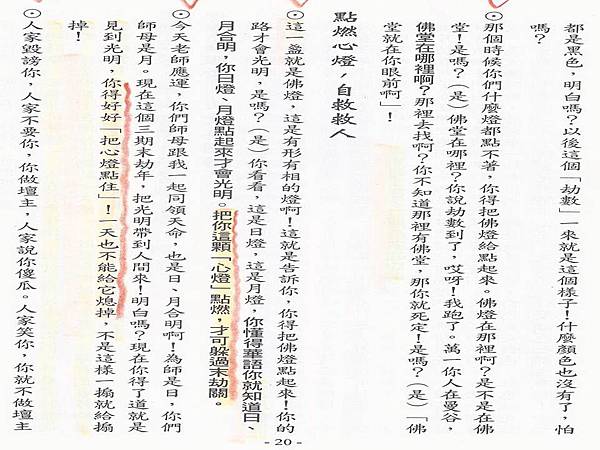 都是黑色，明白嗎？以後這個「劫數」一來就是這個樣子！什麼顏色也沒有了，怕
嗎？
⊙那個時候你們什麼燈都點不著，你得把佛燈給點起來。佛燈在那裡啊？是不是在佛
堂！是嗎？（是）佛堂在哪裡？你說劫數到了，哎呀！我跑了。萬一你人在曼谷，
佛堂在哪裡啊？那裡去找啊？你不知道那裡有佛堂，那你就死定！是嗎？（是）「佛
堂就在你眼前啊」！
點燃心燈，自救救人
⊙這一盞就是佛燈，這是有形有相的燈啊！這就是告訴你，你得把佛燈點起來！你的
路才會光明，是嗎？（是）你看看，這是日燈，這是月燈，你懂得華語你就知道日、
月合明，你日燈、月燈點起來才會光明。把你這顆「心燈」點燃，才可躲過末劫關。
⊙今天老師應運，你們師母跟我一起同領天命，也是日、月合明啊！為師是日，你們
師母是月。現在這個三期末劫年，把光明帶到人間來！明白嗎？現在你得了道就是
見到光明，你得好好「把心燈點住」！一天也不能給它熄掉，不是這樣一搧就給搧
掉！
⊙人家毀謗你，人家不要你，你做壇主，人家說你傻瓜。人家笑你，你就不做壇主
- 20 -